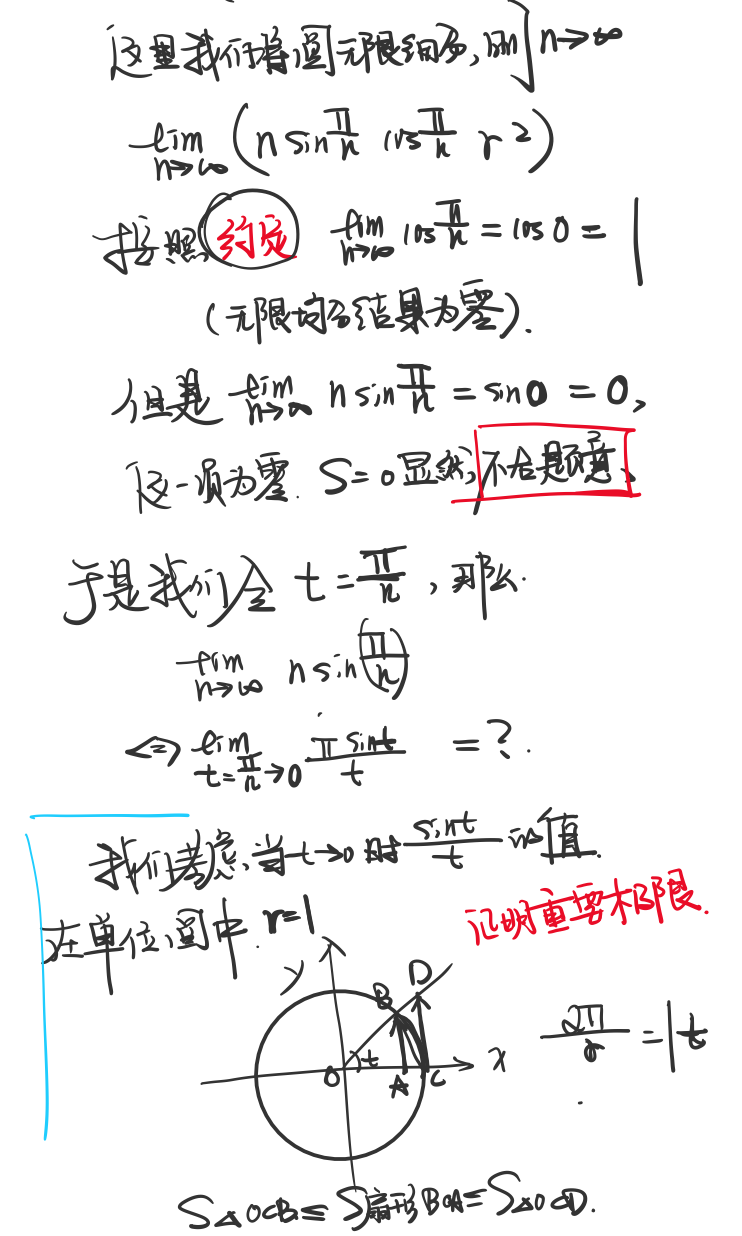 这里我们将圆无限细分,则 n→∞
lim n→∞ (n sin π/n cos π/n r²)
按照 约定 lim n→∞ cos π/n = cos 0 = 1
(无限均分结果为零).
但是 lim n→∞ n sin π/n = sin 0 = 0,
这一项为零. S=0显然,不合题意.
于是我们令 t = π/n , 那么.
lim n→∞ n sin(π/n)
⇔ lim t=π/n→0 π sint/t = ?.
我们考虑,当t→0时 sint/t 的值.
在单位圆中. r=1
证明重要极限.
y
D
B
O t A C x
= 1 t
S△OCB ≤ S扇形BOA ≤ S△OCD.